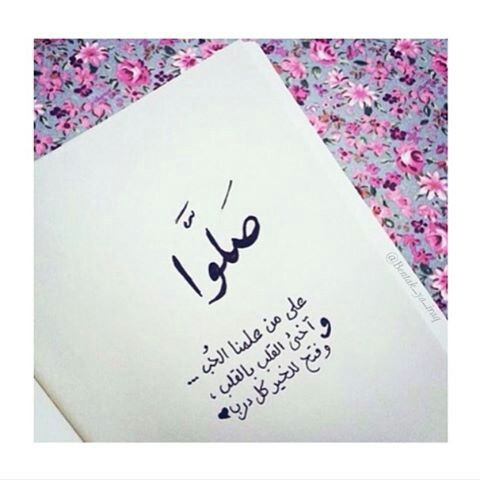 صَلّوا
على من علمنا الحُب ...
و آخى القلب بالقلب ،
و فتح للخير كل درب